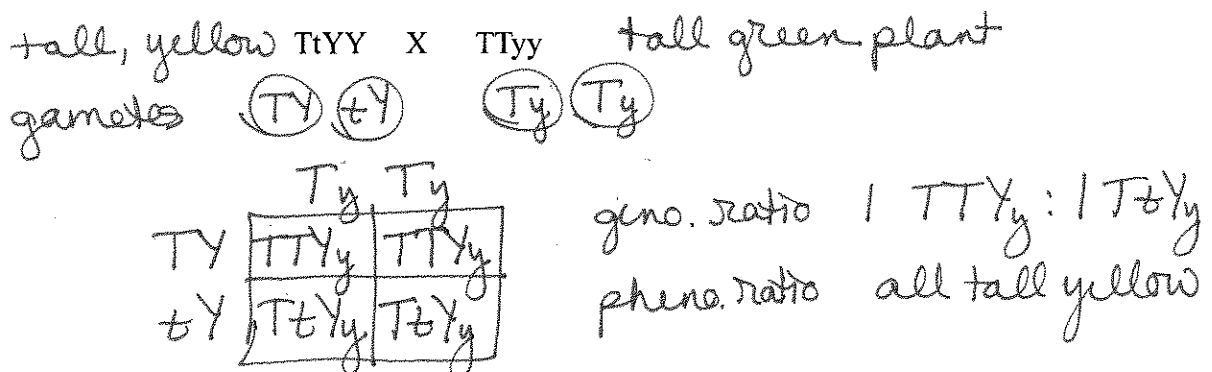 tall, yellow TtYY X TTyy tall green plant
gametes TY tY Ty Ty
Ty Ty
TY TTYy TTYy
tY TtYy TtYy
geno. ratio 1 TTYy : 1 TtYy
pheno. ratio all tall yellow